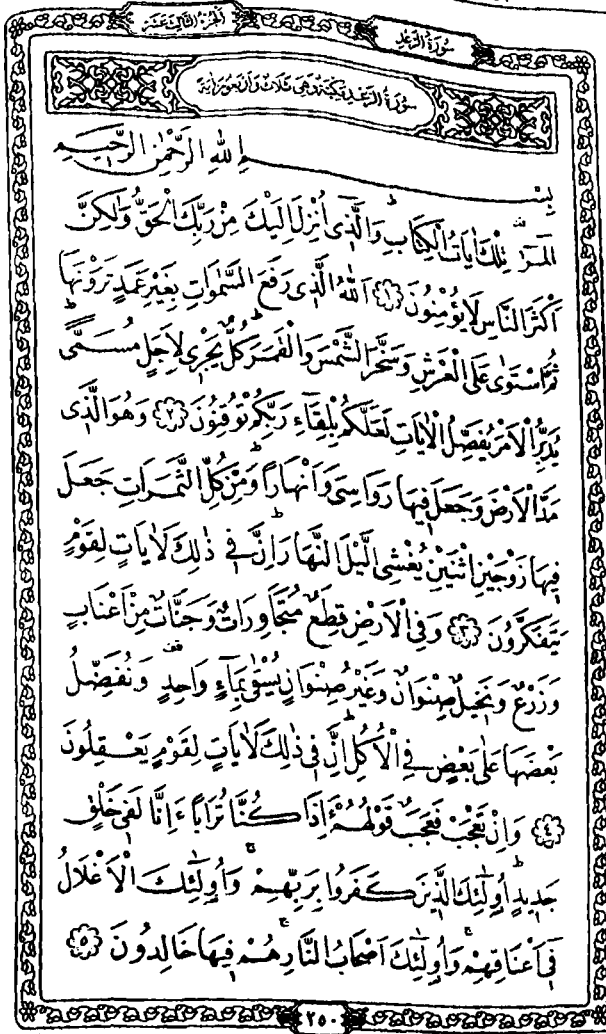 الجزء الثالث عشر
سورة الرعد
سُورَةُ الرَّعْدِ مَكِّيَّةٌ وَهِيَ ثَلَاثٌ وَأَرْبَعُونَ آيَةً
بِسْمِ اللهِ الرَّحْمٰنِ الرَّحِيمِ
الٓمٓرٰ تِلْكَ اٰيَاتُ الْكِتَابِ وَالَّذٖى اُنْزِلَ اِلَيْكَ مِنْ رَبِّكَ الْحَقُّ وَلٰكِنَّ
اَكْثَرَ النَّاسِ لَا يُؤْمِنُونَ ﴿١﴾ اَللّٰهُ الَّذٖى رَفَعَ السَّمٰوَاتِ بِغَيْرِ عَمَدٍ تَرَوْنَهَا
ثُمَّ اسْتَوٰى عَلَى الْعَرْشِ وَسَخَّرَ الشَّمْسَ وَالْقَمَرَ كُلٌّ يَجْرٖى لِاَجَلٍ مُسَمًّى
يُدَبِّرُ الْاَمْرَ يُفَصِّلُ الْاٰيَاتِ لَعَلَّكُمْ بِلِقَٓاءِ رَبِّكُمْ تُوقِنُونَ ﴿٢﴾ وَهُوَ الَّذٖى
مَدَّ الْاَرْضَ وَجَعَلَ فٖيهَا رَوَاسِىَ وَاَنْهَارًا وَمِنْ كُلِّ الثَّمَرَاتِ جَعَلَ
فٖيهَا زَوْجَيْنِ اثْنَيْنِ يُغْشِى الَّيْلَ النَّهَارَ اِنَّ فٖى ذٰلِكَ لَاٰيَاتٍ لِقَوْمٍ
يَتَفَكَّرُونَ ﴿٣﴾ وَفِى الْاَرْضِ قِطَعٌ مُتَجَاوِرَاتٌ وَجَنَّاتٌ مِنْ اَعْنَابٍ
وَزَرْعٌ وَنَخٖيلٌ صِنْوَانٌ وَغَيْرُ صِنْوَانٍ يُسْقٰى بِمَٓاءٍ وَاحِدٍ وَنُفَضِّلُ
بَعْضَهَا عَلٰى بَعْضٍ فِى الْاُكُلِ اِنَّ فٖى ذٰلِكَ لَاٰيَاتٍ لِقَوْمٍ يَعْقِلُونَ
﴿٤﴾ وَاِنْ تَعْجَبْ فَعَجَبٌ قَوْلُهُمْ ءَاِذَا كُنَّا تُرَابًا ءَاِنَّا لَفٖى خَلْقٍ
جَدٖيدٍ اُولٰٓئِكَ الَّذٖينَ كَفَرُوا بِرَبِّهِمْ وَاُولٰٓئِكَ الْاَغْلَالُ
فٖى اَعْنَاقِهِمْ وَاُولٰٓئِكَ اَصْحَابُ النَّارِ هُمْ فٖيهَا خَالِدُونَ ﴿٥﴾
٢٥٠